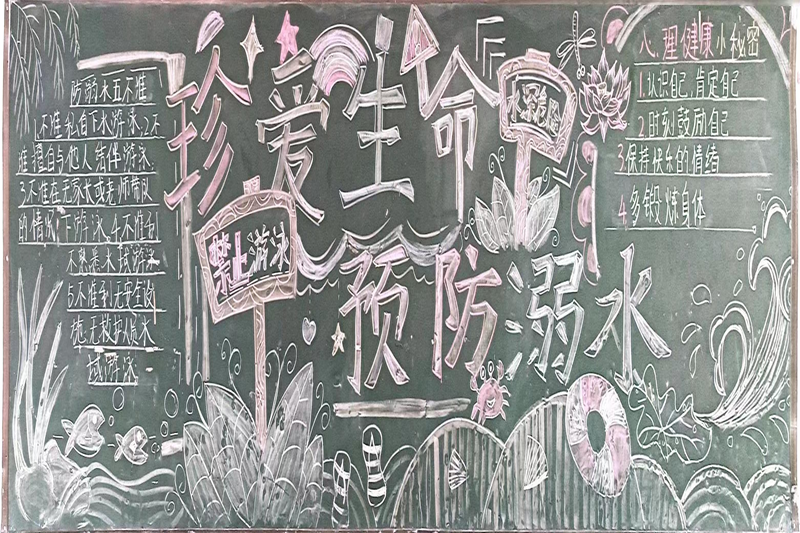 珍爱生命
预防溺水
防溺水五不准
1不准私自下水游泳,2不
准擅自与他人结伴游泳
3不准在无家长或老师带队
的情况下游泳,4不准到
不熟悉水域游泳
5不准到无安全设
施,无救护人员水
域游泳
禁止游泳
水深危险
心理健康小秘密
1.认识自己,肯定自己
2.时刻鼓励自己
3保持快乐的情绪
4.多锻炼身体